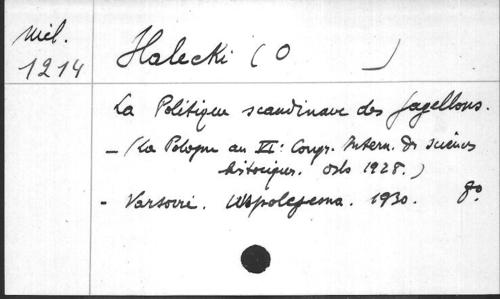 Mél.
1214
Halecki (O )
La Politique scandinave des Jagellons.
- (La Pologne au VI: Congr. Intern. des sciences
historiques. Oslo 1928.)
- Varsovie. 1930. 8o.